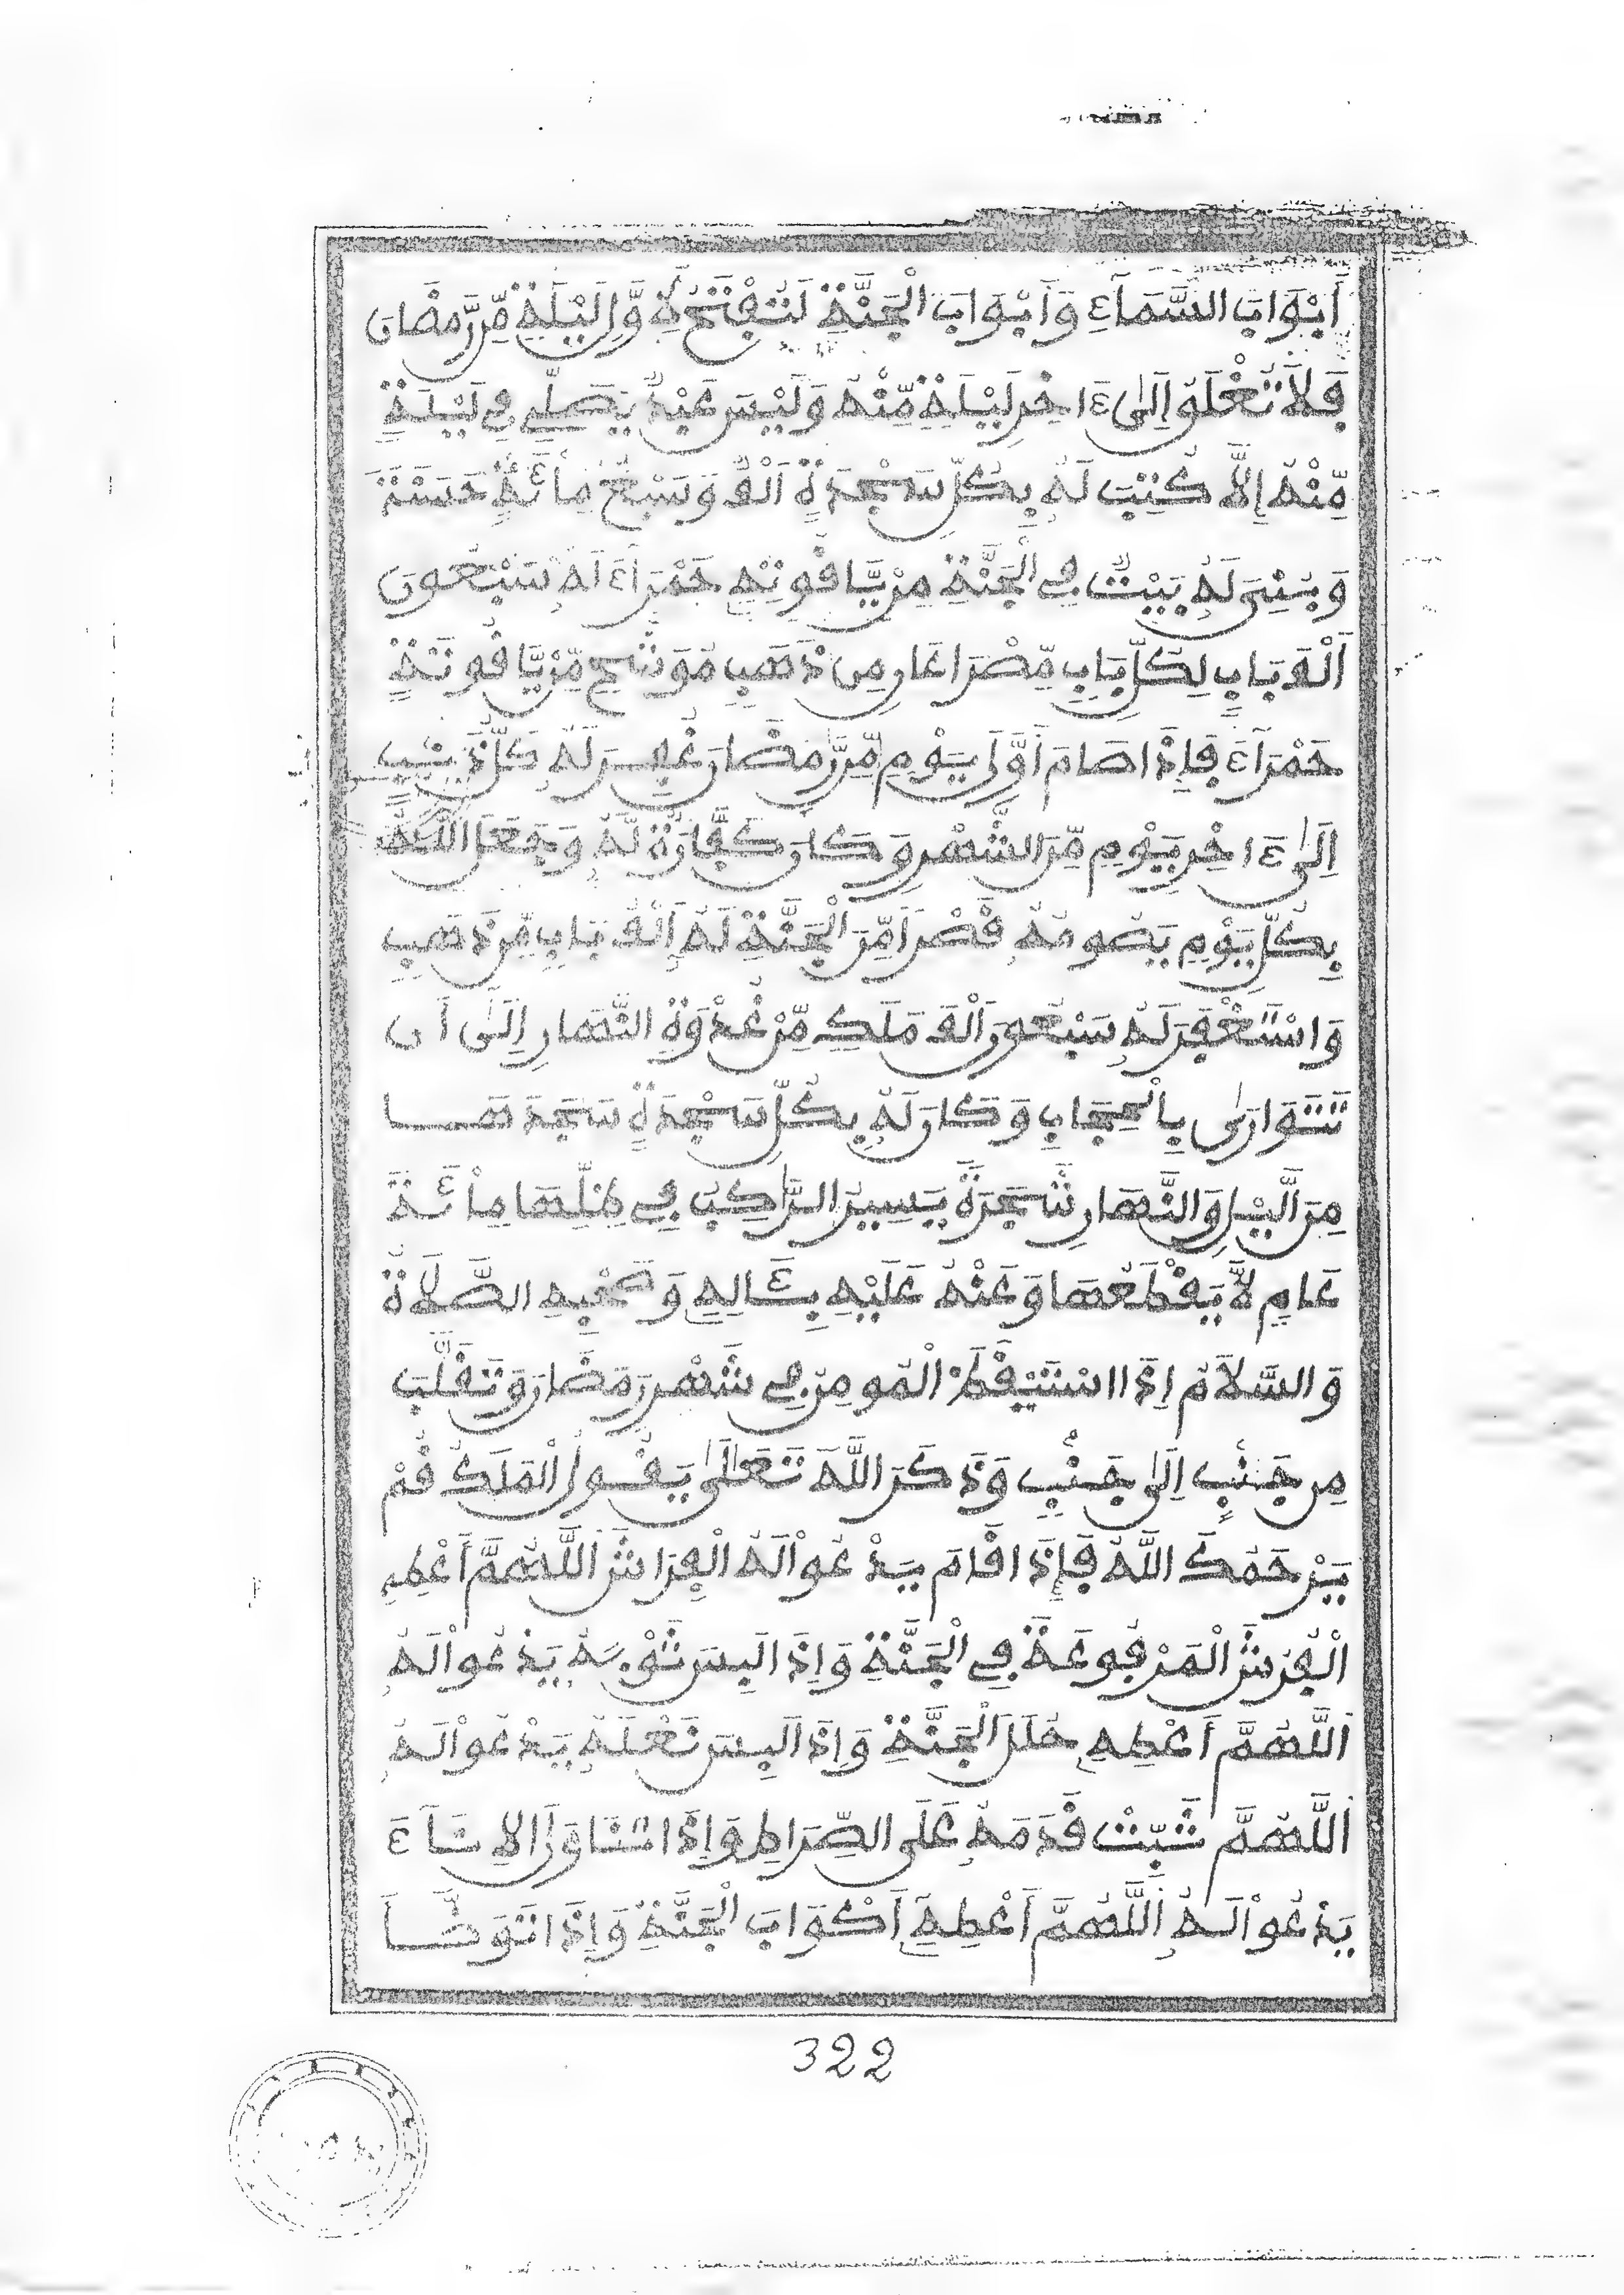 أَبْوَابَ السَّمَآءِ وَأَبْوَابَ الْجَنَّةِ لَتُفْتَحُ لِأَوَّلِ لَيْلَةٍ مِّن رَّمَضَانَ
فَلَا تُغْلَقُ إِلَىٰ ءَاخِرِ لَيْلَةٍ مِّنْهُ وَلَيْسَ عَبْدٌ يُصَلِّي فِي لَيْلَةٍ
مِّنْهُ إِلَّا كُتِبَ لَهُ بِكُلِّ سَجْدَةٍ أَلْفٌ وَسَبْعُ مِائَةِ حَسَنَةٍ
وَبُنِيَ لَهُ بَيْتٌ فِي الْجَنَّةِ مِنْ يَّاقُوتَةٍ حَمْرَآءَ لَهُ سَبْعُونَ
أَلْفَ بَابٍ لِكُلِّ بَابٍ مِّصْرَاعَانِ مِن ذَهَبٍ مُوَشَّحٍ مِّنْ يَّاقُوتَةٍ
حَمْرَآءَ فَإِذَا صَامَ أَوَّلَ يَوْمٍ مِّن رَّمَضَانَ غُفِرَ لَهُ كُلُّ ذَنْبٍ
إِلَىٰ ءَاخِرِ يَوْمٍ مِّنَ الشَّهْرِ وَكَانَ كَفَّارَةً لَّهُ وَجَعَلَ اللَّهُ
بِكُلِّ يَوْمٍ يَصُومُهُ قَصْراً مِّنَ الْجَنَّةِ لَهُ أَلْفُ بَابٍ مِّن ذَهَبٍ
وَاسْتَغْفَرَ لَهُ سَبْعُونَ أَلْفَ مَلَكٍ مِّنْ غُدْوَةِ النَّهَارِ إِلَىٰ أَن
تَتَوَارَىٰ بِالْحِجَابِ وَكَانَ لَهُ بِكُلِّ سَجْدَةٍ سَجَدَهَا
مِنَ الَّيْلِ وَالنَّهَارِ شَجَرَةٌ يَسِيرُ الرَّاكِبُ فِي ظِلِّهَا مِائَةَ
عَامٍ لَّا يَقْطَعُهَا وَعَنْهُ عَلَيْهِ بِئَالِهِ وَصَحْبِهِ الصَّلَاةُ
وَالسَّلَامُ إِذَا اسْتَيْقَظَ الْمُومِنُ فِي شَهْرِ رَمَضَانَ وَتَقَلَّبَ
مِن جَنْبٍ إِلَىٰ جَنْبٍ وَذَكَرَ اللَّهَ تَعَالَىٰ يَقُولُ الْمَلَكُ قُمْ
يَرْحَمُكَ اللَّهُ فَإِذَا قَامَ يَدْعُوا لَهُ الْفِرَاشُ اللَّهُمَّ أَعْطِهِ
الْفُرُشَ الْمَرْفُوعَةَ فِي الْجَنَّةِ وَإِذَا لَبِسَ ثَوْبَهُ يَدْعُوا لَهُ
اللَّهُمَّ أَعْطِهِ حُلَلَ الْجَنَّةِ وَإِذَا لَبِسَ نَعْلَهُ يَدْعُوا لَهُ
اللَّهُمَّ ثَبِّتْ قَدَمَهُ عَلَى الصِّرَاطِ وَإِذَا تَنَاوَلَ الْإِنَآءَ
يَدْعُوا لَهُ اللَّهُمَّ أَعْطِهِ أَكْوَابَ الْجَنَّةِ وَإِذَا تَوَضَّأَ
322